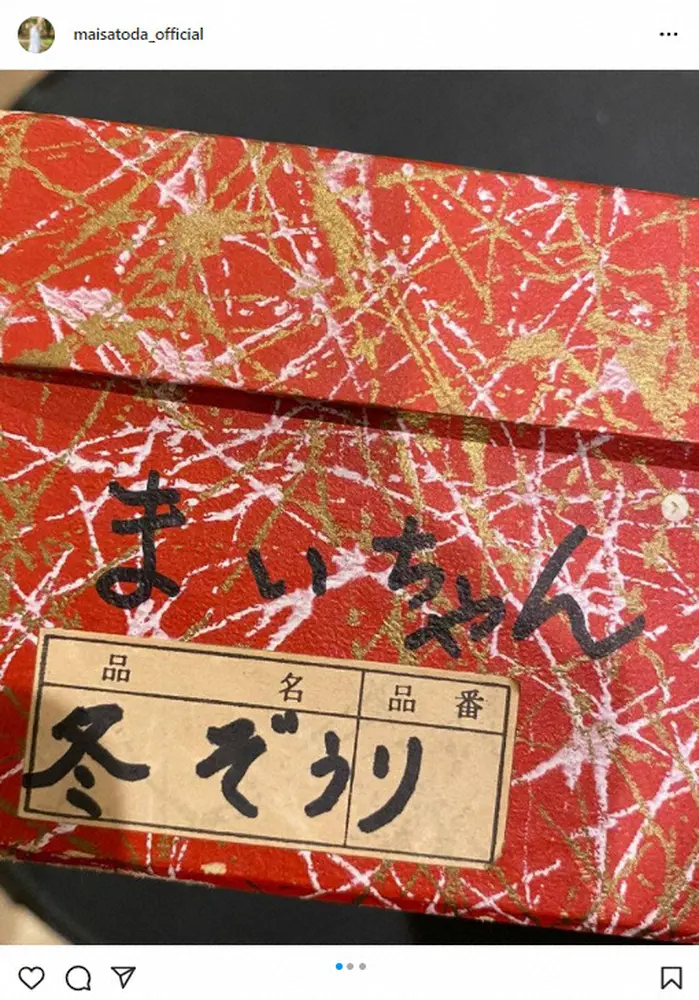 maisatoda_official
まいちゃん
品名 品番
冬ぞうり